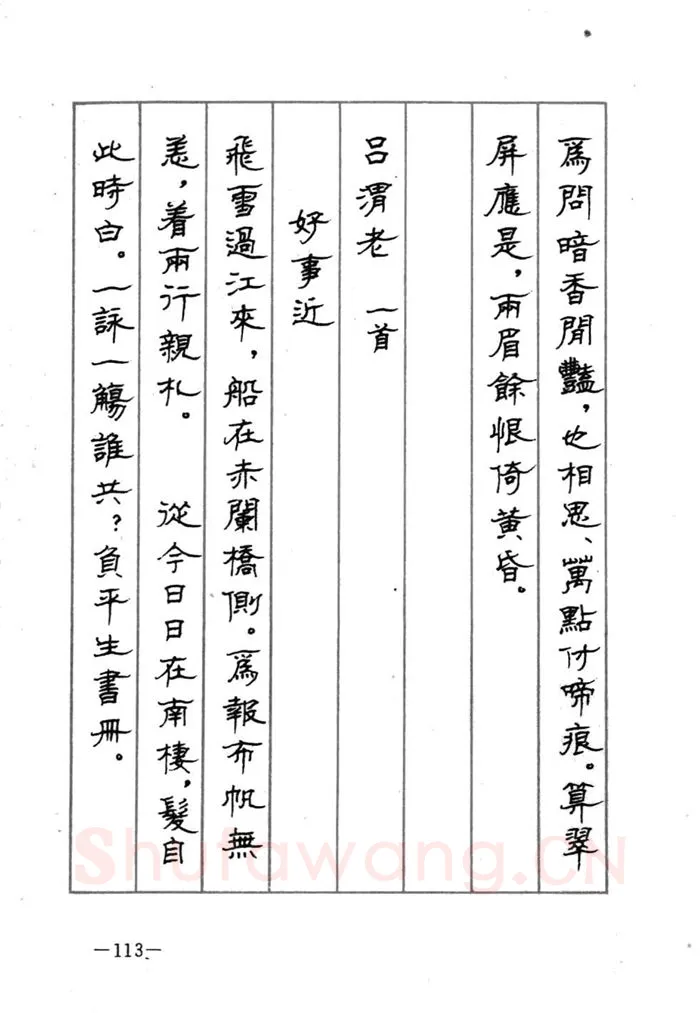 爲問暗香閒豔，也相思、萬點付啼痕。算翠
屏應是，兩眉餘恨倚黃昏。
呂渭老 一首
好事近
飛雪過江來，船在赤闌橋側。爲報布帆無
恙，着兩行親札。 從今日日在南棲，髮自
此時白。一詠一觴誰共？負平生書冊。
Shufawang.CN
—113—